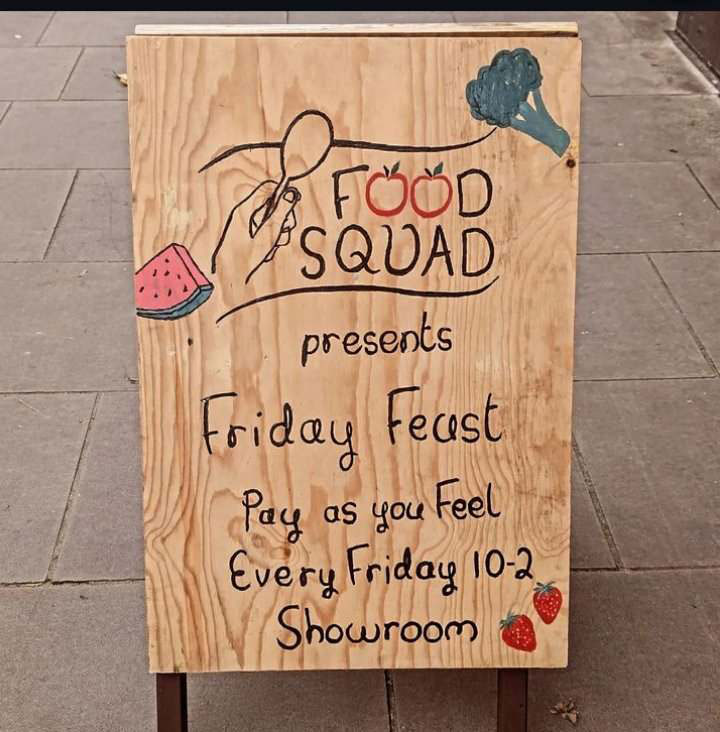 FOOD
SQUAD
presents
Friday Feast
Pay as you Feel
Every Friday 10-2
Showroom